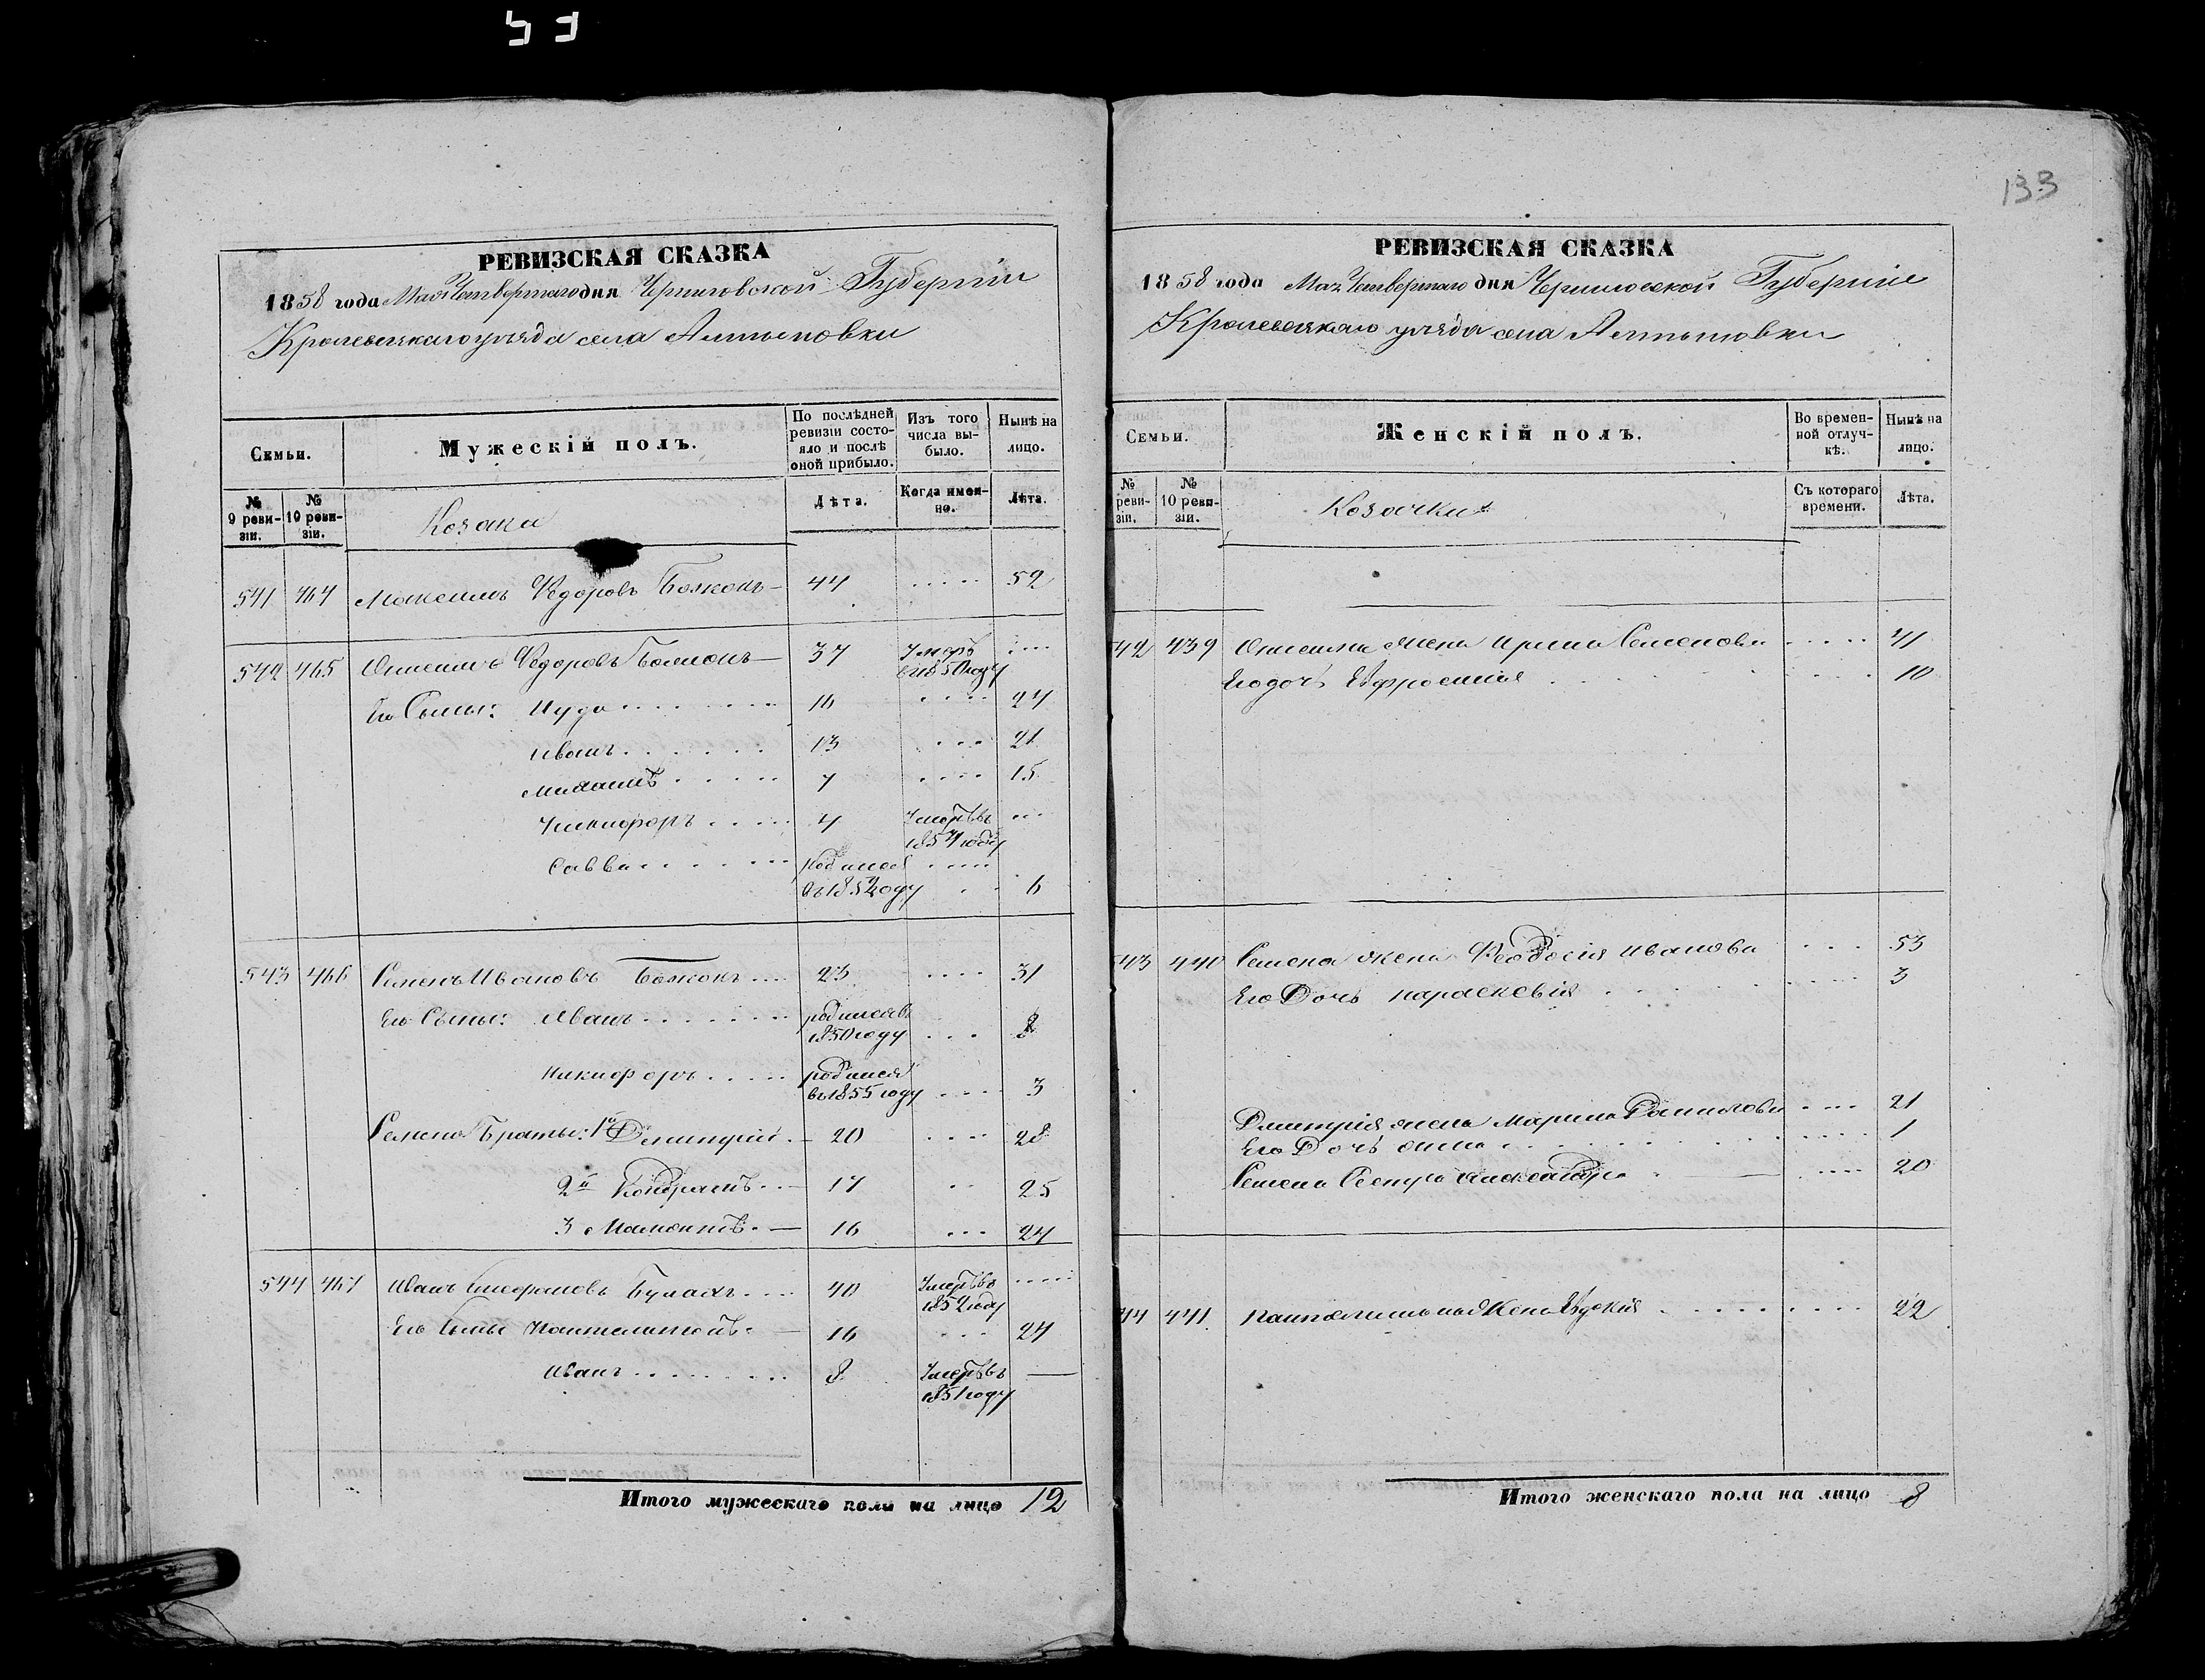 133
РЕВИЗСКАЯ СКАЗКА
1858 года Мая Четвертаго дня Черниговской Губерніи
Кролевецкаго уѣзда села Алтыновки
Семьи.
Мужескій полъ.
По послѣдней ревизіи состояло и послѣ оной прибыло.
Изъ того числа выбыло.
Нынѣ на лицо.
№ 9 ревизіи.
№ 10 ревизіи.
Козаки
Лѣта.
Когда именно.
Лѣта.
541 464 Максимъ Ѳедоровъ Божокъ 44 ..... 52
542 465 Онисимъ Ѳедоровъ Божокъ 37 Умеръ ....
въ 1850 году
Его Сыны: Иуда 16 .... 24
Иванъ 13 ... 21
Михаилъ 7 .... 15
4 Умеръ въ ...
1854 году
Савва родился .....
въ 1852 году 6
543 466 Семенъ Ивановъ Божокъ 23 .... 31
Его Сыны: Иванъ родился въ
1850 году ... 8
Никифоръ родился
въ 1855 году .... 3
Семена Браты: 1й Дмитрій 20 .... 28
2й Кондратъ 17 .. 25
3 Мамонтъ 16 ... 24
544 467 Иванъ Булахъ 40 Умеръ въ .....
1852 году
Его Сыны Пантелимонъ 16 ... 24
Иванъ 8 Умеръ въ —
1851 году
Итого мужескаго пола на лицо 12
РЕВИЗСКАЯ СКАЗКА
1858 года Мая Четвертаго дня Черниговской Губерніи
Кролевецкаго уѣзда села Алтыновки
Семьи.
Женскій полъ.
Во временной отлучкѣ.
Нынѣ на лицо.
№ ревизіи.
№ 10 ревизіи.
Козачки
Съ котораго времени.
Лѣта.
42 439 Онисима жена Ирина Семенова ..... 41
Его дочь Ефросинія 10
43 440 Семена жена Ѳеодосія Иванова ... 53
Его Дочь Параскевія 3
Дмитрія жена Марина Данилова .... 21
Его Дочь Анна 1
Семена Сестра Александра .... 20
44 441 жена Евдокія 22
Итого женскаго пола на лицо 8